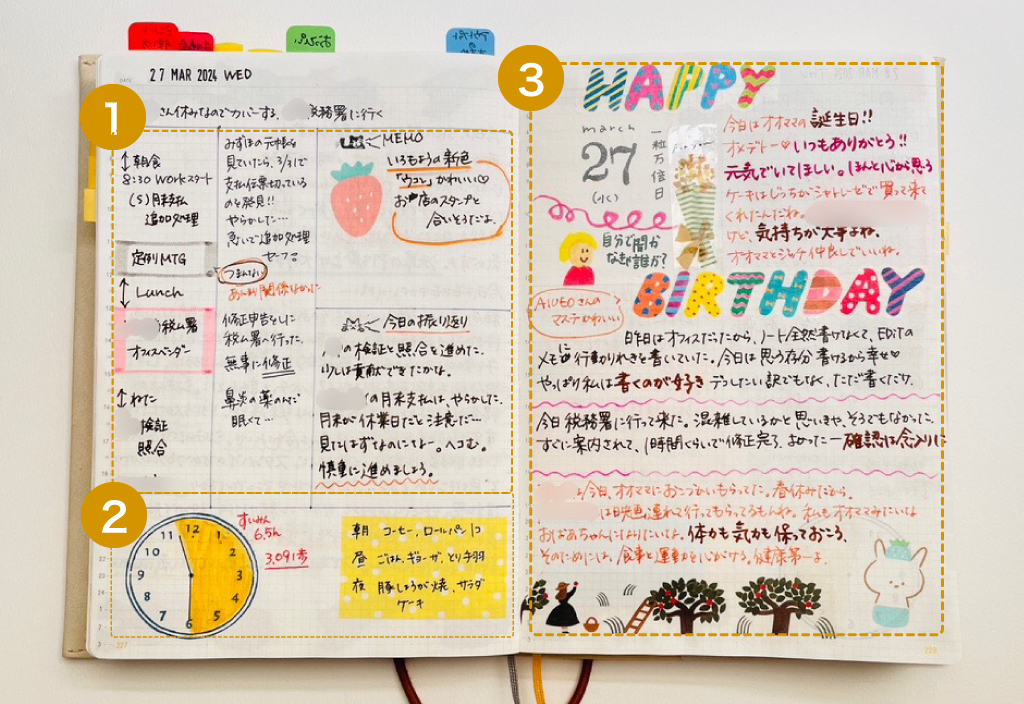 27 MAR 2024 WED
さん休みなのでカバーする。
税務署に行く
1
朝食
8:30 WORKスタート
(5)月末支払
追加処理
定例MTG
Lunch
税ム署
オフィスベンダー
検証
照合
見ていたら、3/31で
支払伝票切っている
のを発見!!
やらかした…
急いで追加処理
セーフ
つまんない
修正申告をしに
税ム署へ行った。
無事に修正
鼻炎の薬のんだ
眠くて…
MEMO
いろもようの新色
「ウユニ」かわいい♡
お店のスタンプと
合いそうだよ。
今日の振り返り
の検証と照合を進めた。
少しは貢献できたかな。
の月末支払は、やらかした。
月末が休業日だと注意だ…
見たはずなのになー。へこむ。
慎重に進めましょう。
2
12
1
2
3
4
5
6
7
8
9
10
11
すいみん
6.5h
3,091歩
朝 コーヒー、ロールパン1コ
昼 ごはん、ギョーザ、とり手羽
夜 豚しょうが焼、サラダ
ケーキ
227
3
HAPPY
march
27
(水)
一粒万倍日
今日はオオママの誕生日!!
オメデトー♡いつもありがとう!!
元気でいてほしい。ほんと心から思う
ケーキはじっちがシャトレーゼで買って来て
くれたんだね。
けど、気持ちが大事よね。
オオママとジッチ仲良しでいいね。
自分で聞か
なきゃ誰が?
BIRTHDAY
AIUEOさんの
マステかわいい
昨日はオフィスだったから、ノート全然書けなくて、EDiTの
メモに行動りれきを書いていた。今日は思う存分書けるから幸せ♡
やっぱり私は書くのが好き どうしたい訳でもなく、ただ書くだけ。
今日税務署に行って来た。混雑しているかと思いきや、そうでもなかった。
すぐに案内されて、1時間くらいで修正完了。よかったー確認は念入りに
今日、オオママにおこづかいもらってた。春休みだから。
は映画連れて行ってもらってるもんね。私もオオママみたいな
おばあちゃんになりたいな。体力も気力も保っておこう。
そのためには、食事と運動を心がける。健康第一よ。
228